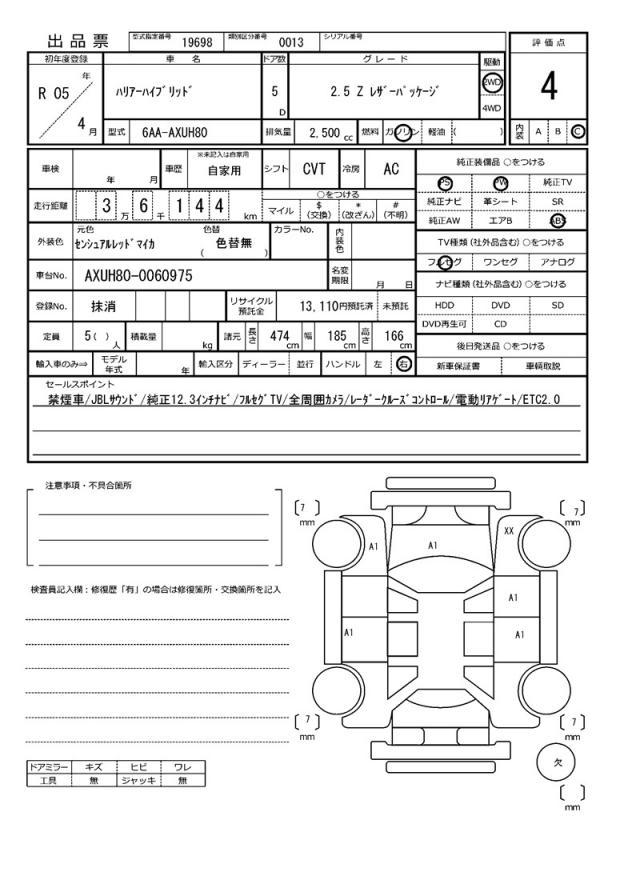 出品票 型式指定番号 19698 類別区分番号 0013 シリアル番号
評価点
初年度登録 車名 ドア数 グレード 駆動
R 05 年 4 月 ﾊﾘｱｰﾊｲﾌﾞﾘｯﾄﾞ 5 D 2.5 Z ﾚｻﾞｰﾊﾟｯｹｰｼﾞ 2WD 4WD
4
型式 6AA-AXUH80 排気量 2,500 cc 燃料 ガソリン 軽油 ( )
内装 A B C
車検 年 月 車歴 ※未記入は自家用 自家用 シフト CVT 冷房 AC
純正装備品 ○をつける
PS PW 純正TV
純正ナビ 革シート SR
純正AW エアB ABS
走行距離 3 万 6 千 1 4 4 km
○をつける
マイル $ (交換) * (改ざん) # (不明)
外装色 元色 ｾﾝｼｭｱﾙﾚｯﾄﾞﾏｲｶ 色替 ( 色替無 ) カラーNo. 内装色
TV種類 (社外品含む) ○をつける
フルセグ ワンセグ アナログ
車台No. AXUH80-0060975 名変期限 月 日
ナビ種類 (社外品含む) ○をつける
HDD DVD SD
DVD再生可 CD
登録No. 抹消 リサイクル預託金 13,110円預託済 未預託
定員 5 ( ) 人 積載量 kg 諸元 長さ 474 cm 幅 185 cm 高さ 166 cm
後日発送品 ○をつける
新車保証書 車輌取説
輸入車のみ⇒ モデル年式 年 輸入区分 ディーラー 並行 ハンドル 左 右
セールスポイント
禁煙車/JBLｻｳﾝﾄﾞ/純正12.3ｲﾝﾁﾅﾋﾞ/ﾌﾙｾｸﾞTV/全周囲ｶﾒﾗ/ﾚｰﾀﾞｰｸﾙｰｽﾞｺﾝﾄﾛｰﾙ/電動ﾘｱｹﾞｰﾄ/ETC2.0
注意事項・不具合箇所
検査員記入欄：修復歴「有」の場合は修復箇所・交換箇所を記入
ドアミラー キズ ヒビ ワレ
工具 無 ジャッキ 無
7 mm
7 mm
A1 A1 XX
A1
A1 A1
7 mm
7 mm
欠
mm